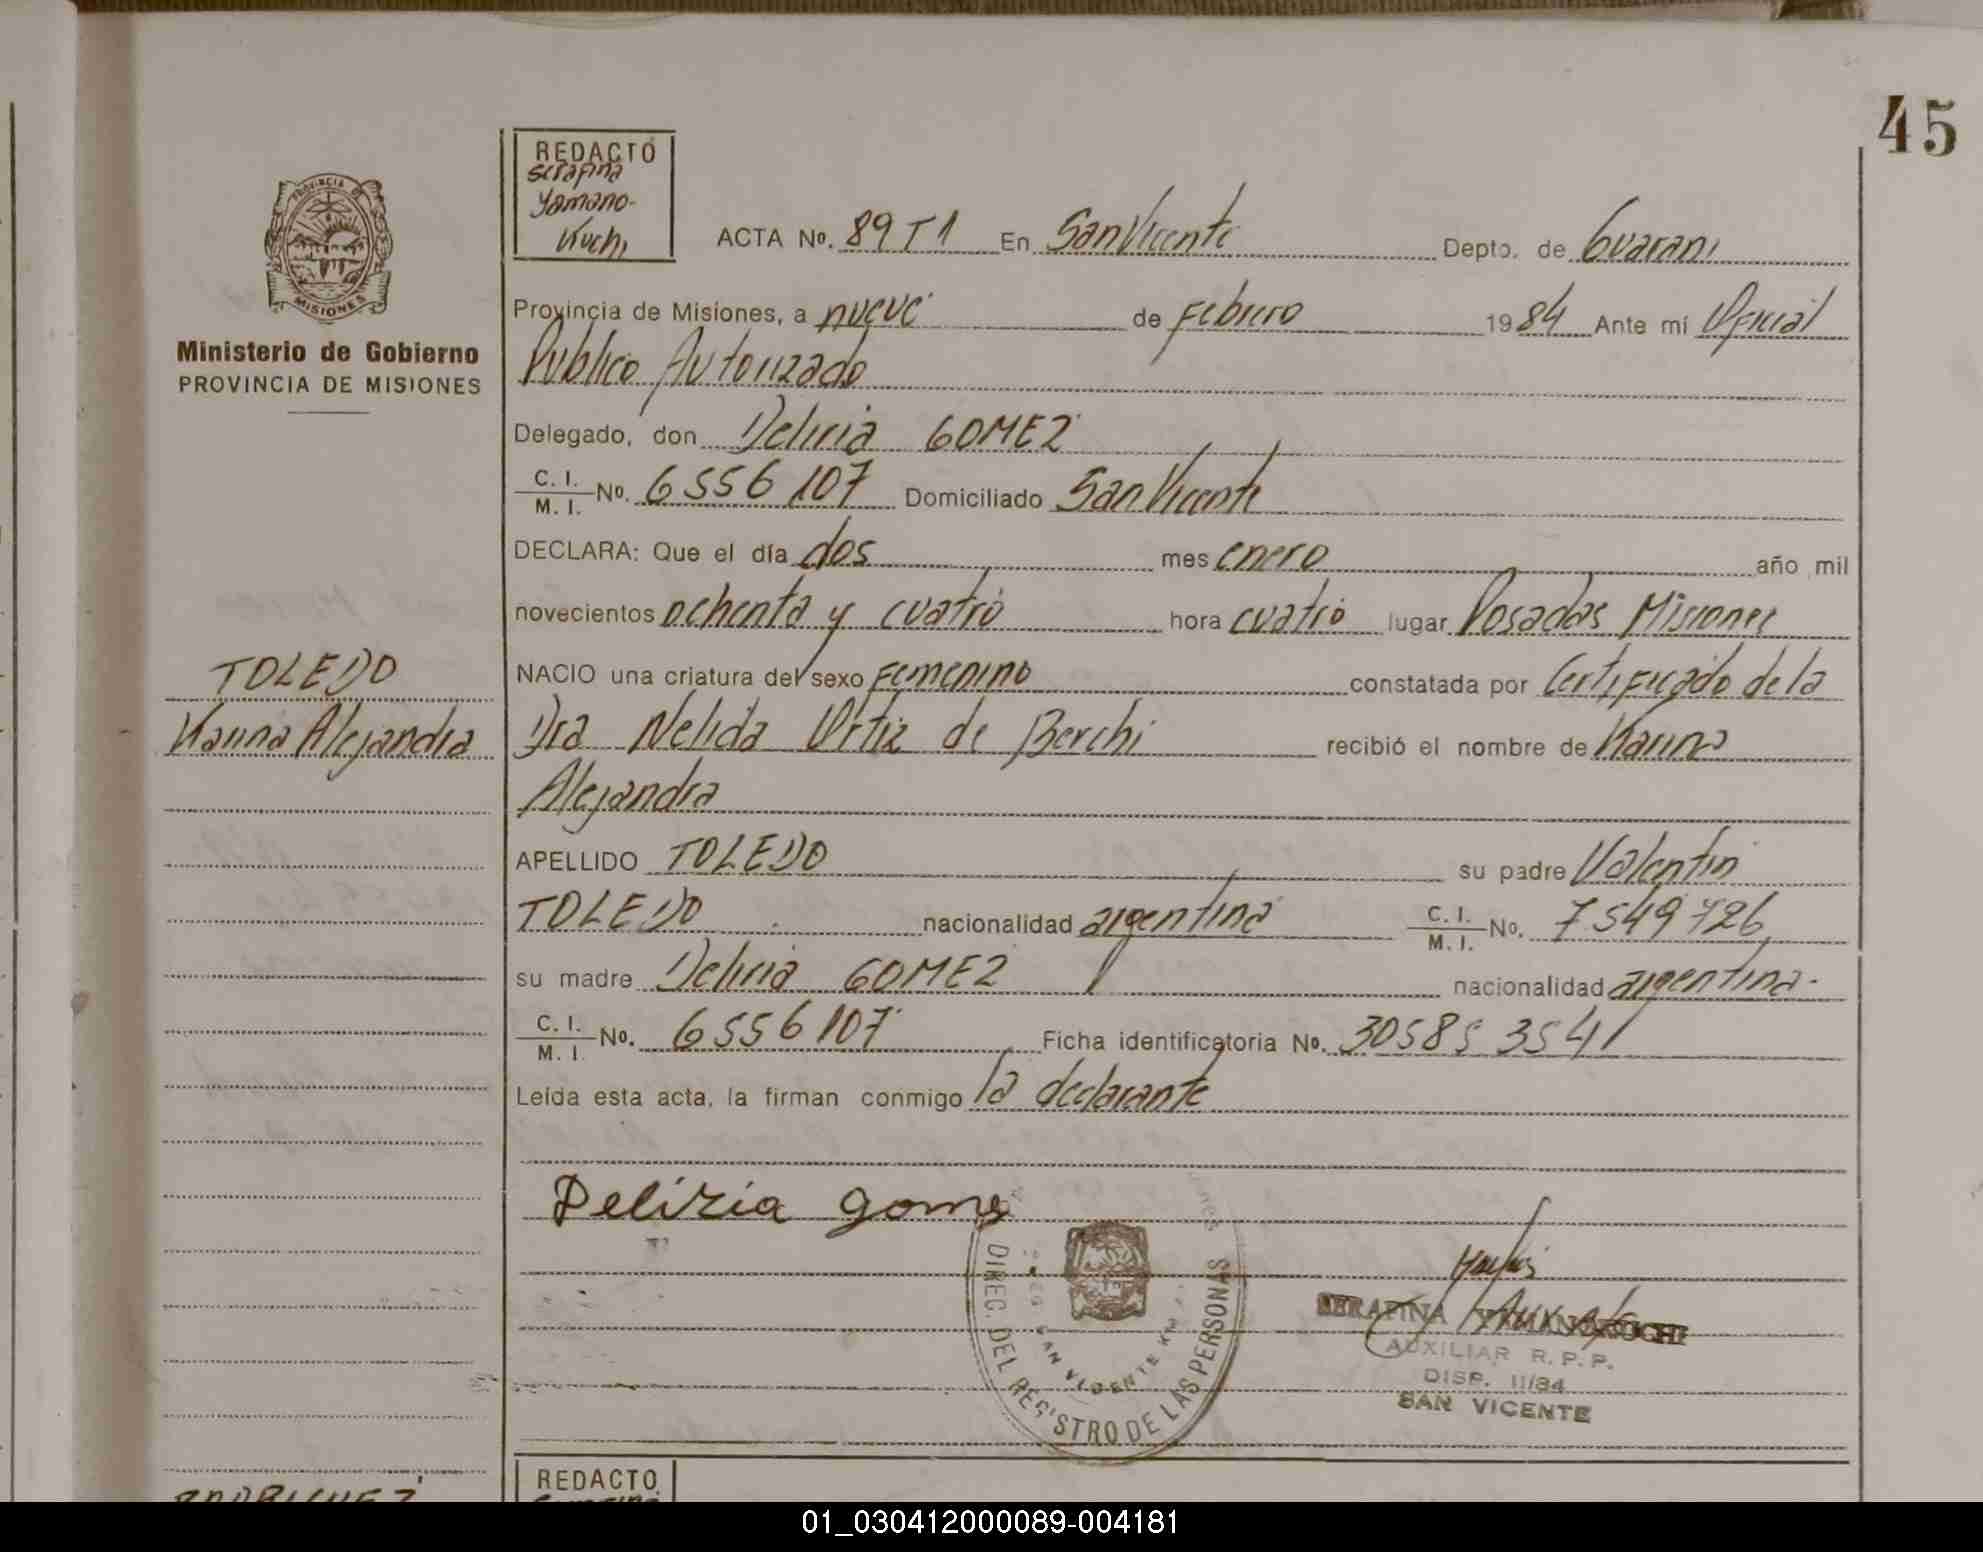 45
REDACTO
Serafina
Yamano-
Kuchi
PROVINCIA DE
MISIONES
Ministerio de Gobierno
PROVINCIA DE MISIONES
ACTA No. 89 T 1 En San Vicente Depto. de Guarani
Provincia de Misiones, a nueve de Febrero 1984 Ante mí Oficial
Publico Autorizado
Delegado, don Delicia GOMEZ
C. I. / M. I. No. 6556107 Domiciliado San Vicente
DECLARA: Que el día dos mes enero año mil
novecientos ochenta y cuatro hora cuatro lugar Posadas Misiones
NACIO una criatura del sexo Femenino constatada por Certificado de la
Dra Nelida Ortiz de Berchi recibió el nombre de Karina
Alejandra
TOLEDO
Karina Alejandra
APELLIDO TOLEDO su padre Valentin
TOLEDO nacionalidad argentina C. I. / M. I. No. 7549726
su madre Delicia GOMEZ nacionalidad argentina.
C. I. / M. I. No. 6556107 Ficha identificatoria No. 30585354
Leída esta acta, la firman conmigo la declarante
Delizia gomes
DIREC. DEL REGISTRO DE LAS PERSONAS
SAN VICENTE
SERAFINA YAMANOKUCHI
AUXILIAR R. P. P.
DISP. 11/84
SAN VICENTE
REDACTO
RODRIGUEZ
01_030412000089-004181